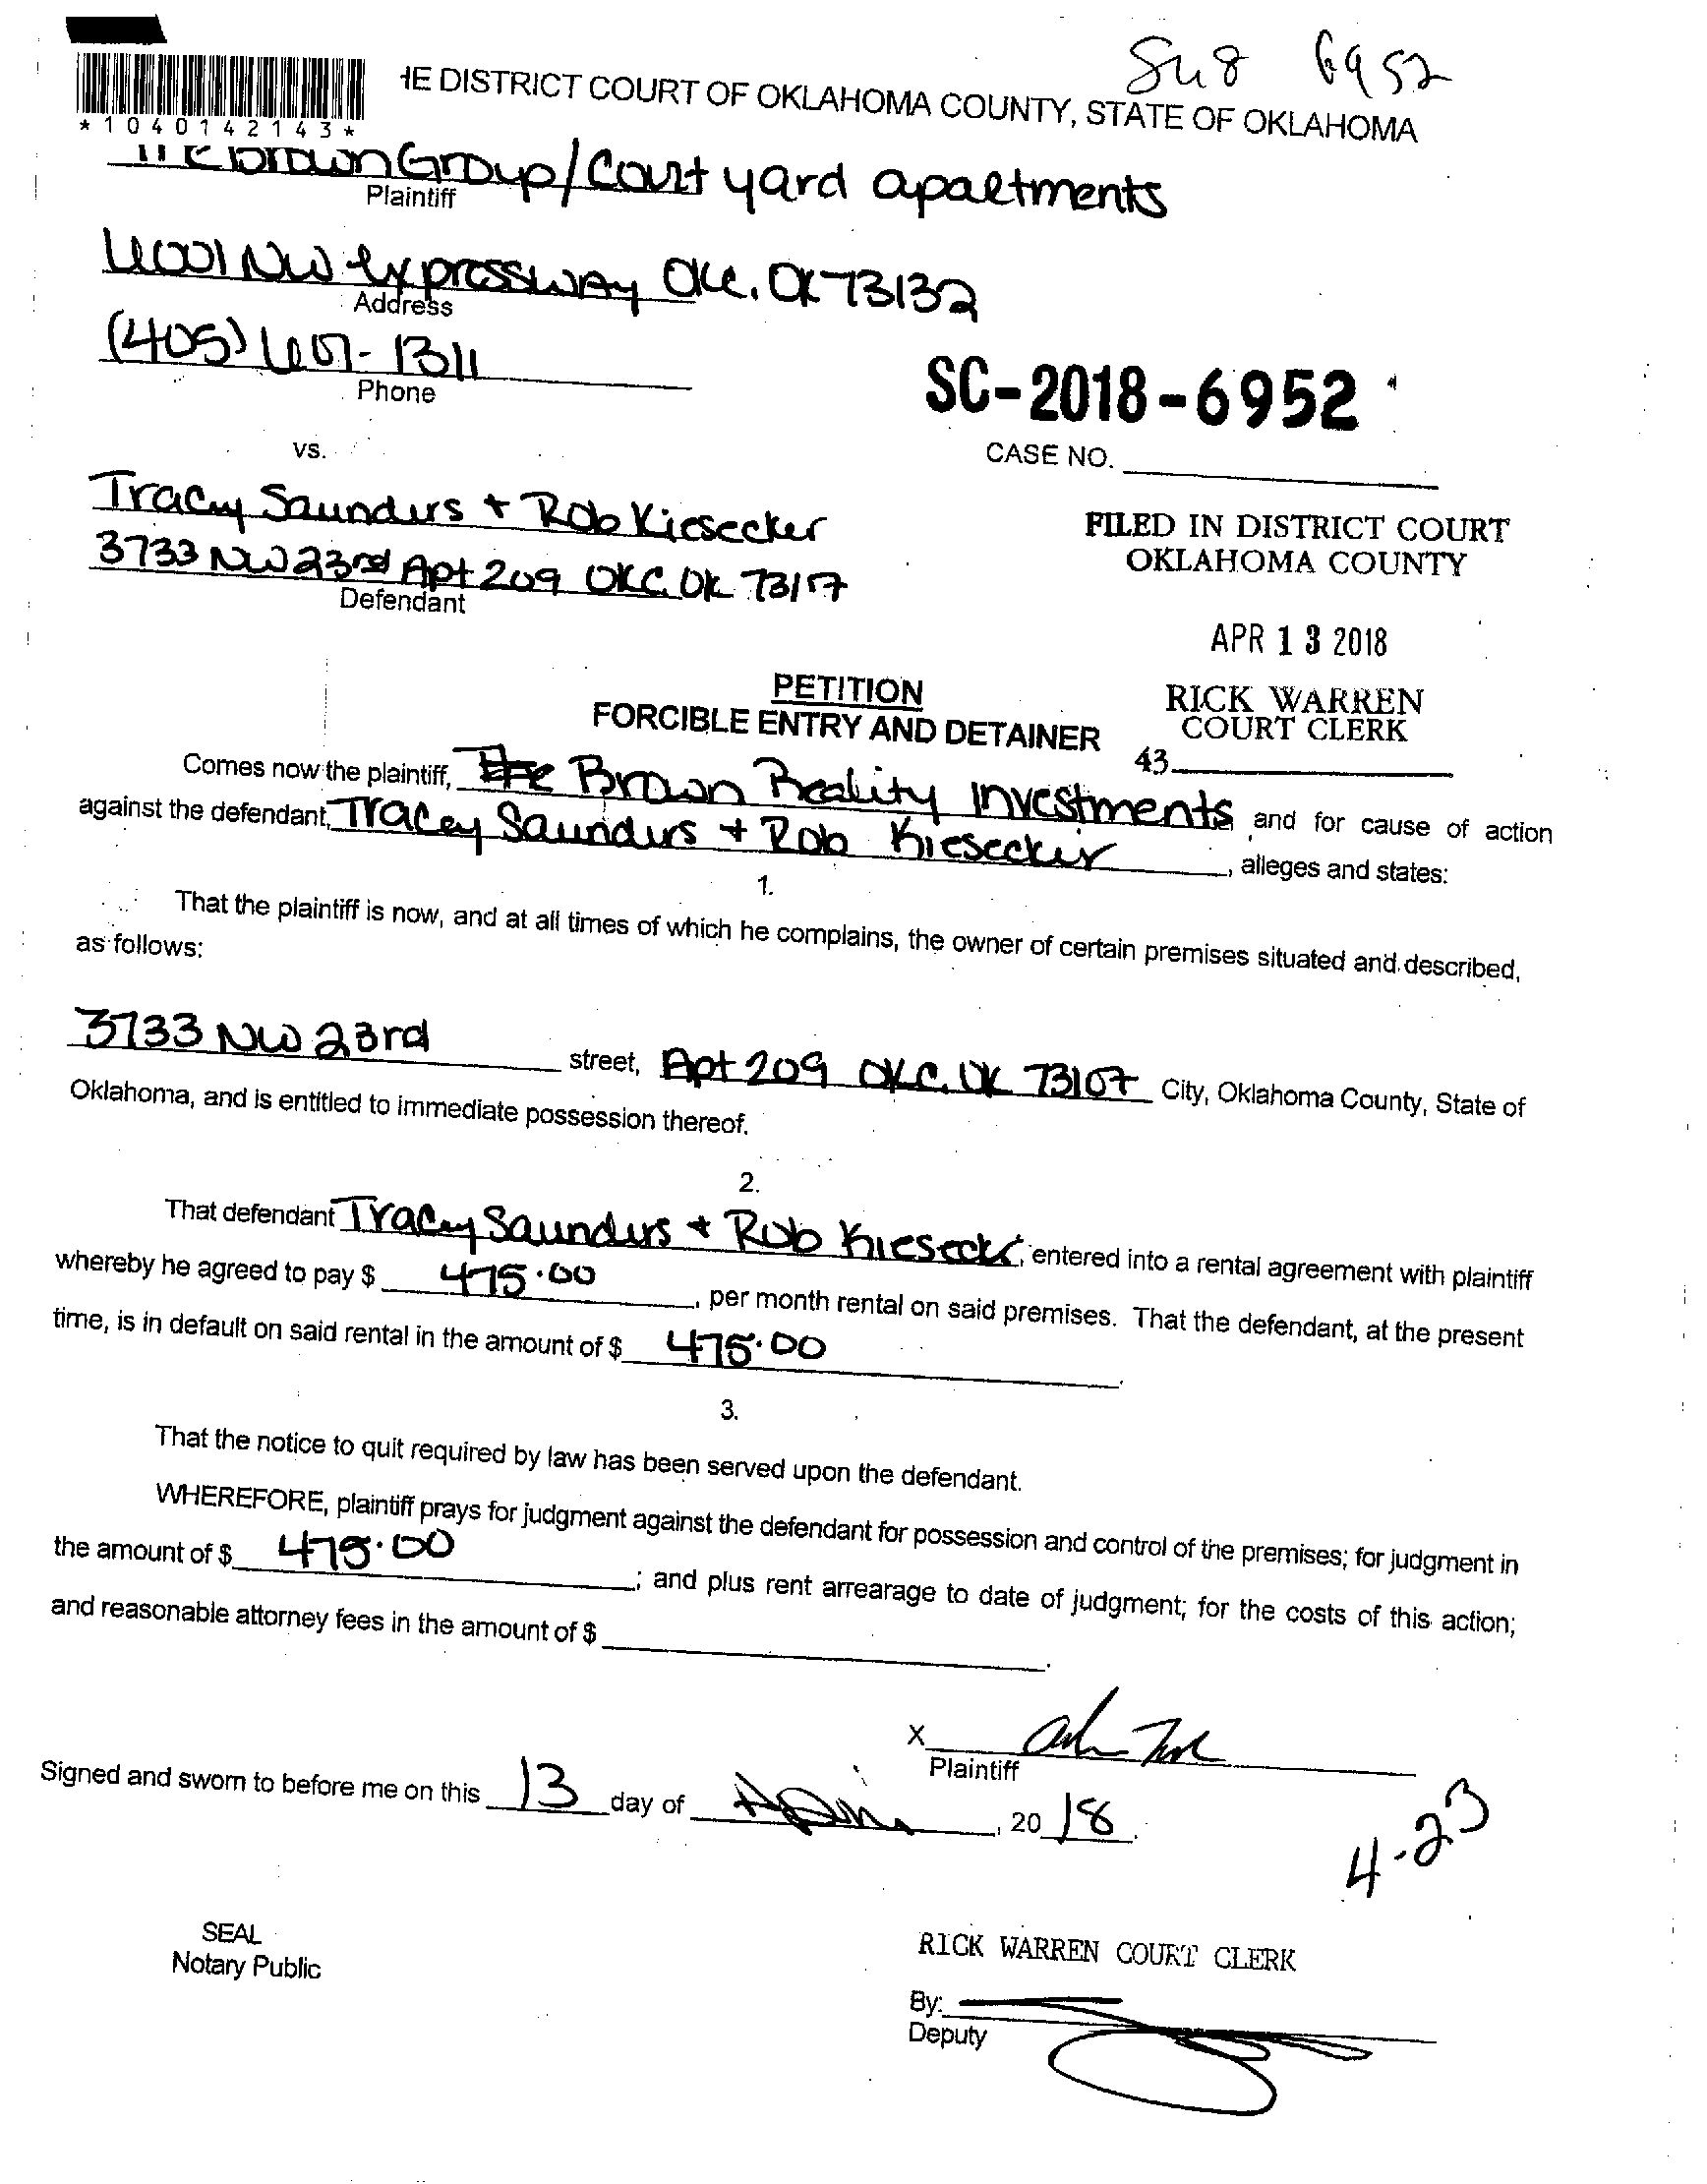 Su8 6952
HE DISTRICT COURT OF OKLAHOMA COUNTY, STATE OF OKLAHOMA
*1040142143*
The Brown Group/Court yard apartments
Plaintiff
6001 NW expressway OKC. OK 73132
Address
(405) 607-1311
Phone
SC-2018-6952
CASE NO.
vs.
Tracy Saunders + Rob Kiesecker
3733 NW 23rd Apt 209 OKC. OK 73117
Defendant
FILED IN DISTRICT COURT
OKLAHOMA COUNTY
APR 13 2018
RICK WARREN
COURT CLERK
43
PETITION
FORCIBLE ENTRY AND DETAINER
Comes now the plaintiff, The Brown Reality Investments and for cause of action
against the defendant, Tracey Saunders + Rob Kiesecker, alleges and states:
1.
That the plaintiff is now, and at all times of which he complains, the owner of certain premises situated and described,
as follows:
3733 NW 23rd street, Apt 209 OKC. OK 73107 City, Oklahoma County, State of
Oklahoma, and is entitled to immediate possession thereof.
2.
That defendant Tracey Saunders + Rob Kiesecker, entered into a rental agreement with plaintiff
whereby he agreed to pay $ 475.00, per month rental on said premises. That the defendant, at the present
time, is in default on said rental in the amount of $ 475.00.
3.
That the notice to quit required by law has been served upon the defendant.
WHEREFORE, plaintiff prays for judgment against the defendant for possession and control of the premises; for judgment in
the amount of $ 475.00; and plus rent arrearage to date of judgment; for the costs of this action;
and reasonable attorney fees in the amount of $ .
X
Plaintiff
Signed and sworn to before me on this 13 day of April, 20 18.
4-23
SEAL
Notary Public
RICK WARREN COURT CLERK
By:
Deputy